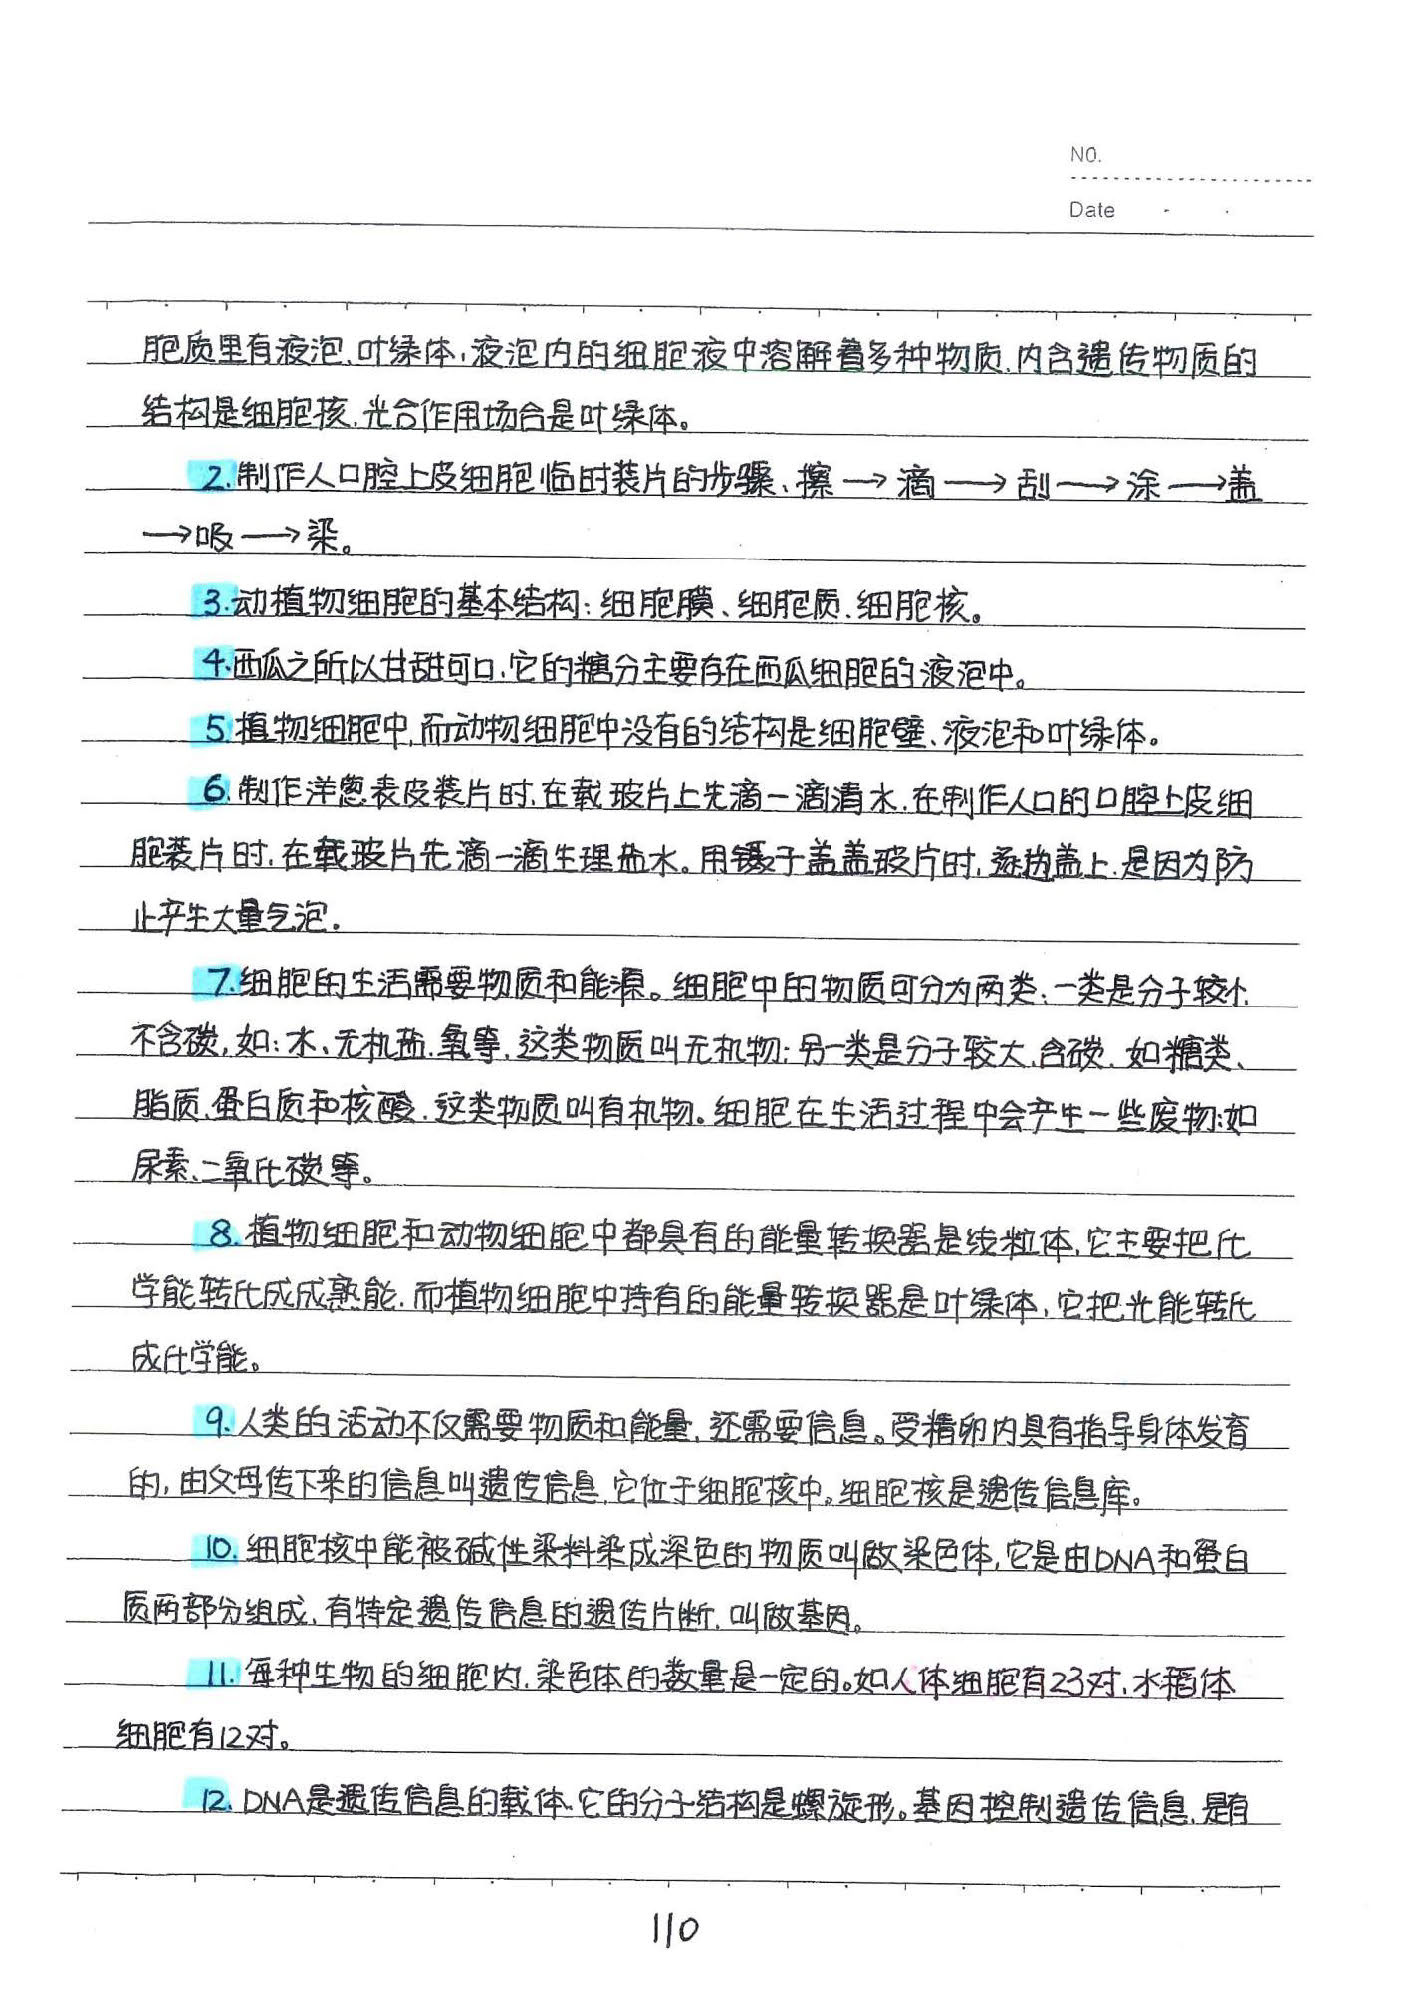 NO.
Date
胞质里有液泡、叶绿体，液泡内的细胞液中溶解着多种物质，内含遗传物质的
结构是细胞核，光合作用场合是叶绿体。
2.制作人口腔上皮细胞临时装片的步骤、擦→滴→刮→涂→盖
→吸→染。
3.动植物细胞的基本结构：细胞膜、细胞质、细胞核。
4.西瓜之所以甘甜可口，它的糖分主要存在西瓜细胞的液泡中。
5.植物细胞中，而动物细胞中没有的结构是细胞壁、液泡和叶绿体。
6.制作洋葱表皮装片时，在载玻片上先滴一滴清水，在制作人口的口腔上皮细
胞装片时，在载玻片先滴一滴生理盐水。用镊子盖盖玻片时，逐边盖上，是因为防
止产生大量气泡。
7.细胞的生活需要物质和能源。细胞中的物质可分为两类，一类是分子较小
不含碳，如：水、无机盐、氧等，这类物质叫无机物；另一类是分子较大，含碳，如糖类、
脂质、蛋白质和核酸，这类物质叫有机物。细胞在生活过程中会产生一些废物：如
尿素、二氧化碳等。
8.植物细胞和动物细胞中都具有的能量转换器是线粒体，它主要把化
学能转化成成熟能，而植物细胞中持有的能量转换器是叶绿体，它把光能转化
成化学能。
9.人类的活动不仅需要物质和能量，还需要信息。受精卵内具有指导身体发育
的，由父母传下来的信息叫遗传信息，它位于细胞核中。细胞核是遗传信息库。
10.细胞核中能被碱性染料染成深色的物质叫做染色体，它是由DNA和蛋白
质两部分组成，有特定遗传信息的遗传片断，叫做基因。
11.每种生物的细胞内，染色体的数量是一定的。如人体细胞有23对，水稻体
细胞有12对。
12.DNA是遗传信息的载体，它的分子结构是螺旋形。基因控制遗传信息，是有
110